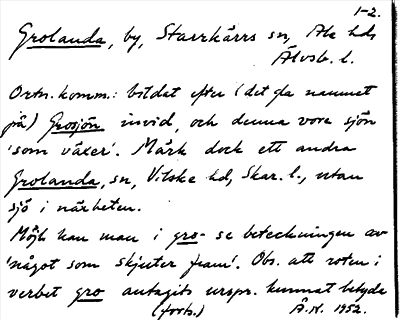 1-2.
Grolanda, by, Starrkärrs sn, Ale hd,
Älvsb. l.
Ortn.komm.: bildat efter (det gla namnet
på) Grosjön invid, och denna vore sjön
'som växer'. Märk dock ett andra
Grolanda, sn, Vilske hd, Skar. l., utan
sjö i närheten.
Möjl. kan man i gro- se beteckningen av
'något som skjuter fram'. Obs. att roten i
verbet gro antagits urspr. kunnat betyda
(forts.) Å.H. 1952.